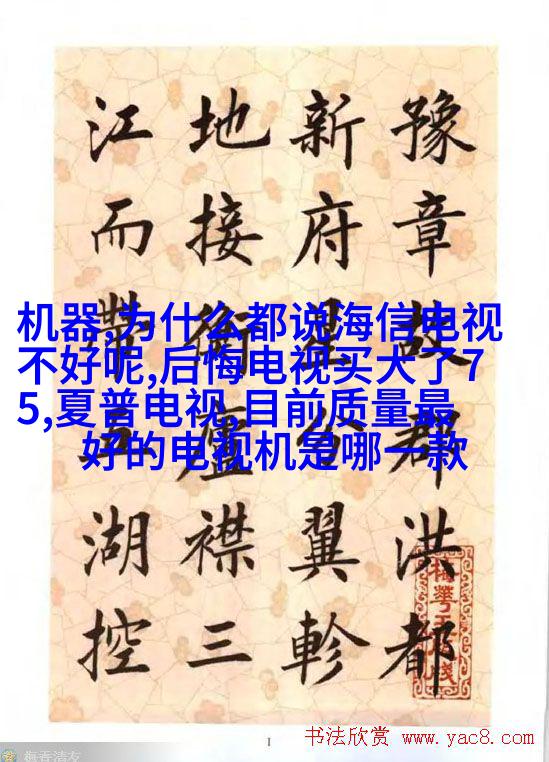 豫章故郡洪都
新府星分翼軫
地接衡廬襟三
江而帶五湖控
机器,为什么都说海信电视
不好呢,后悔电视买大了7
5,夏普电视,目前质量最
好的电视机是哪一款
1
书法欣赏 www.yac8.com
梅香清友